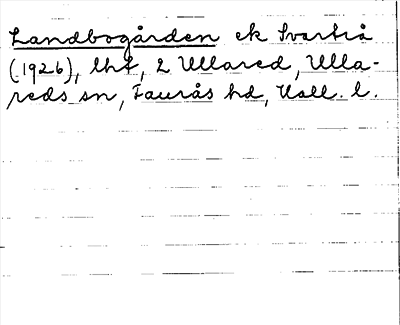 Landbogården ek Svartrå
(1926), lht, 2 Ullared, Ulla-
reds sn, Faurås hd, Hall. l.